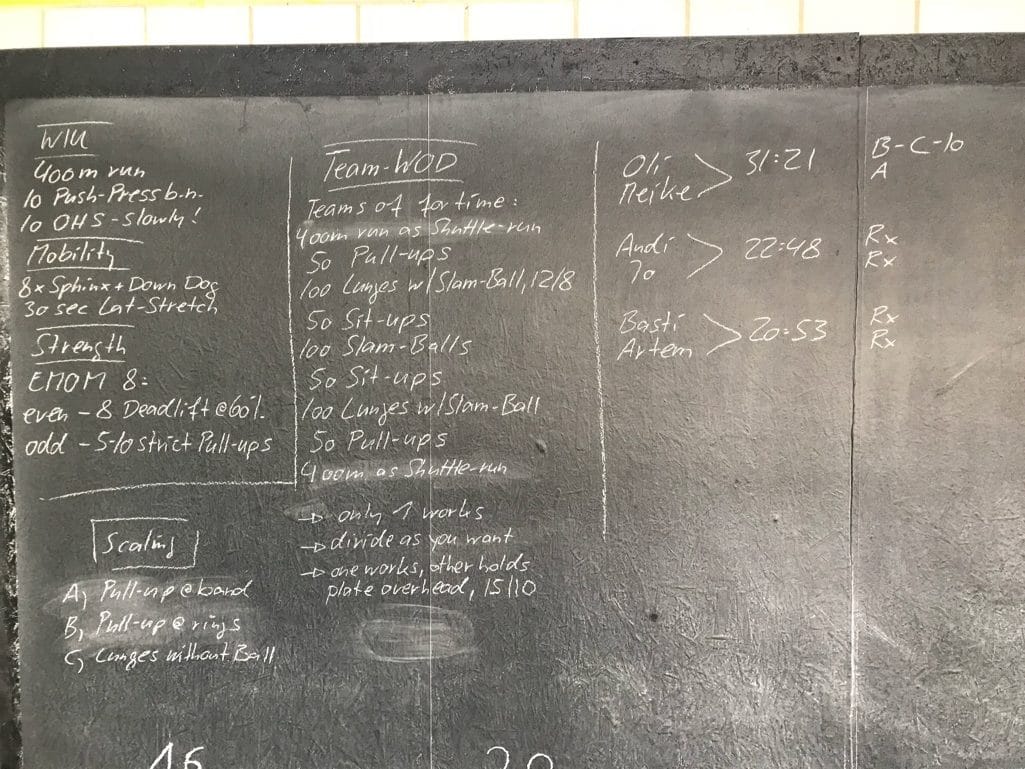 WU
400m run
10 Push-Press b.n.
10 OHS - slowly!
Mobility
8x Sphinx + Down Dog
30 sec Lat-Stretch
Strength
EMOM 8:
even - 8 Deadlift @60%
odd - 5-10 strict Pull-ups
Scaling
A) Pull-up @ band
B) Pull-up @ rings
C) Lunges without Ball
Team-WOD
Teams of for time:
400m run as Shuttle-run
50 Pull-ups
100 Lunges w/ Slam-Ball, 12/8
50 Sit-ups
100 Slam-Balls
50 Sit-ups
100 Lunges w/ Slam-Ball
50 Pull-ups
400m as Shuttle-run
→ only 1 works
→ divide as you want
→ one works, other holds
plate overhead, 15/10
Oli
Meike
31:21
B-C-10
A
Andi
Jo
22:48
Rx
Rx
Basti
Artem
20:53
Rx
Rx